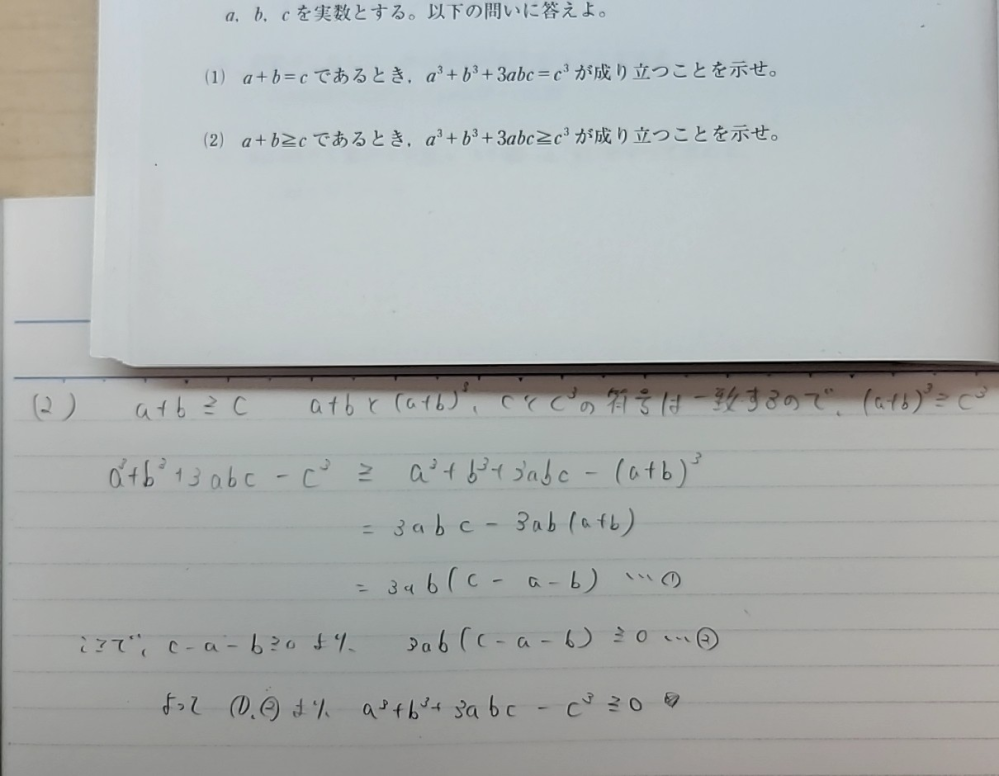 a, b, c を実数とする。以下の問いに答えよ。
(1) a+b=c であるとき, a³+b³+3abc=c³ が成り立つことを示せ。
(2) a+b≧c であるとき, a³+b³+3abc≧c³ が成り立つことを示せ。
(2) a+b≧c a+bと(a+b)³、cとc³の符号は一致するので、(a+b)³≧c³
a³+b³+3abc-c³ ≧ a³+b³+3abc-(a+b)³
= 3abc-3ab(a+b)
= 3ab(c-a-b) …①
ここで、c-a-b≧0より、 3ab(c-a-b)≧0 …②
よって ①,②より、a³+b³+3abc-c³≧0